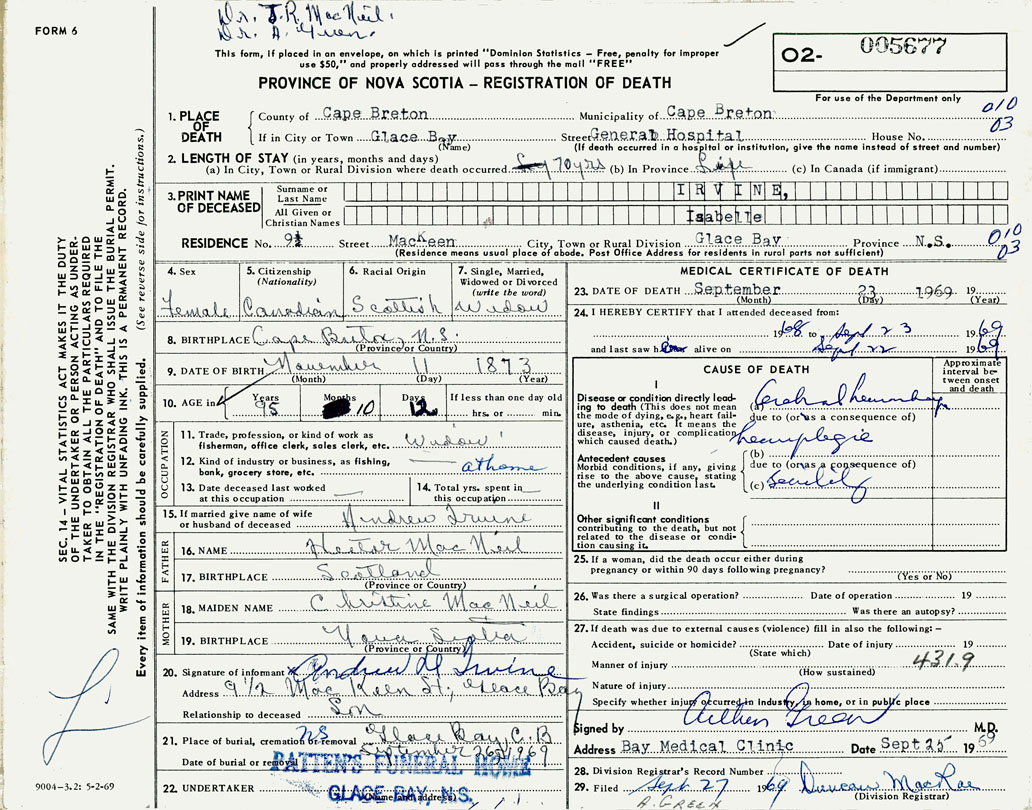 FORM 6
Dr. J.R. MacNeil.
Dr. A. Green.
This form, if placed in an envelope, on which is printed "Dominion Statistics – Free, penalty for improper
use $50," and properly addressed will pass through the mail "FREE"
PROVINCE OF NOVA SCOTIA – REGISTRATION OF DEATH
02- 005677
For use of the Department only
1. PLACE OF DEATH
County of Cape Breton Municipality of Cape Breton
010
03
If in City or Town Glace Bay Street General Hospital House No.
(Name) (If death occurred in a hospital or institution, give the name instead of street and number)
2. LENGTH OF STAY (in years, months and days)
(a) In City, Town or Rural Division where death occurred 70yrs (b) In Province Life (c) In Canada (if immigrant)
3. PRINT NAME OF DECEASED
Surname or Last Name IRVINE,
All Given or Christian Names Isabelle
RESIDENCE No. 9½ Street MacKeen City, Town or Rural Division Glace Bay Province N.S.
010
03
(Residence means usual place of abode. Post Office Address for residents in rural parts not sufficient)
4. Sex Female
5. Citizenship (Nationality) Canadian
6. Racial Origin Scottish
7. Single, Married, Widowed or Divorced (write the word) Widow
8. BIRTHPLACE Cape Breton, N.S.
(Province or Country)
9. DATE OF BIRTH November 11 1873
(Month) (Day) (Year)
10. AGE in Years 95 Months 10 Days 12 If less than one day old
hrs. or min.
OCCUPATION
11. Trade, profession, or kind of work as
fisherman, office clerk, sales clerk, etc. Widow
12. Kind of industry or business, as fishing,
bank, grocery store, etc. at home
13. Date deceased last worked
at this occupation
14. Total yrs. spent in
this occupation
15. If married give name of wife
or husband of deceased Andrew Irvine
FATHER
16. NAME Hector MacNeil
17. BIRTHPLACE Scotland
(Province or Country)
MOTHER
18. MAIDEN NAME Christine MacNeil
19. BIRTHPLACE Nova Scotia
(Province or Country)
20. Signature of informant x Andrew M Irvine
Address 9 1/2 MacKeen St; Glace Bay
Relationship to deceased Son
21. Place of burial, cremation or removal NS Glace Bay, C.B
Date of burial or removal September 26, 1969
22. UNDERTAKER PATTEN'S FUNERAL HOME
GLACE BAY, N.S.
(Name and address)
MEDICAL CERTIFICATE OF DEATH
23. DATE OF DEATH September 23 1969 19
(Month) (Day) (Year)
24. I HEREBY CERTIFY that I attended deceased from:
1968 to Sept 23 1969
and last saw her alive on Sept 22 1969
CAUSE OF DEATH
Approximate interval between onset and death
I
Disease or condition directly leading to death (This does not mean the mode of dying, e.g., heart failure, asthenia, etc. It means the disease, injury, or complication which caused death.)
(a) Cerebral hemorrhage
due to (or as a consequence of)
hemiplegia
Antecedent causes
Morbid conditions, if any, giving rise to the above cause, stating the underlying condition last.
(b)
due to (or as a consequence of)
(c) Senility
II
Other significant conditions
contributing to the death, but not related to the disease or condition causing it.
25. If a woman, did the death occur either during
pregnancy or within 90 days following pregnancy?
(Yes or No)
26. Was there a surgical operation? Date of operation 19
State findings Was there an autopsy?
27. If death was due to external causes (violence) fill in also the following: –
Accident, suicide or homicide? Date of injury 19
(State which)
Manner of injury 431.9
(How sustained)
Nature of injury
Specify whether injury occurred in industry, in home, or in public place
Signed by Arthur Green M.D.
Address Bay Medical Clinic Date Sept 25 1969
28. Division Registrar's Record Number
29. Filed Sept 27 1969 Duncan MacRae
(Division Registrar)
A. GREEN
SEC. 14 – VITAL STATISTICS ACT MAKES IT THE DUTY
OF THE UNDERTAKER OR PERSON ACTING AS UNDER-
TAKER TO OBTAIN ALL THE PARTICULARS REQUIRED
IN THE "REGISTRATION OF DEATH" AND TO FILE THE
SAME WITH THE DIVISION REGISTRAR WHO SHALL ISSUE THE BURIAL PERMIT.
WRITE PLAINLY WITH UNFADING INK. THIS IS A PERMANENT RECORD.
Every item of information should be carefully supplied. (See reverse side for instructions.)
9004-3.2: 5-2-69